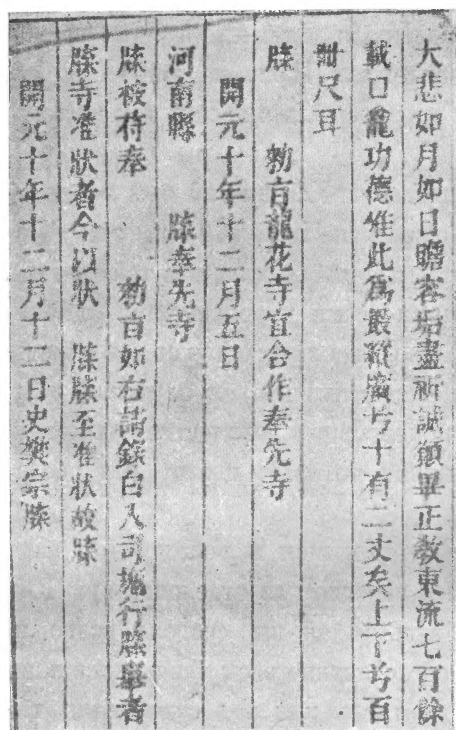 大悲如月如日瞻容垢盡祈誠願畢正教東流七百餘
載口龕功德惟此爲最縱廣兮十有二丈矣上下兮百
卌尺耳
牒　勅旨龍花寺宜合作奉先寺
開元十年十二月五日
河南縣　牒奉先寺
牒被符奉　勅旨如右請錄白入司施行牒舉者
牒寺准狀者今以狀　牒牒至准狀故牒
開元十年十二月十二日史樊宗牒